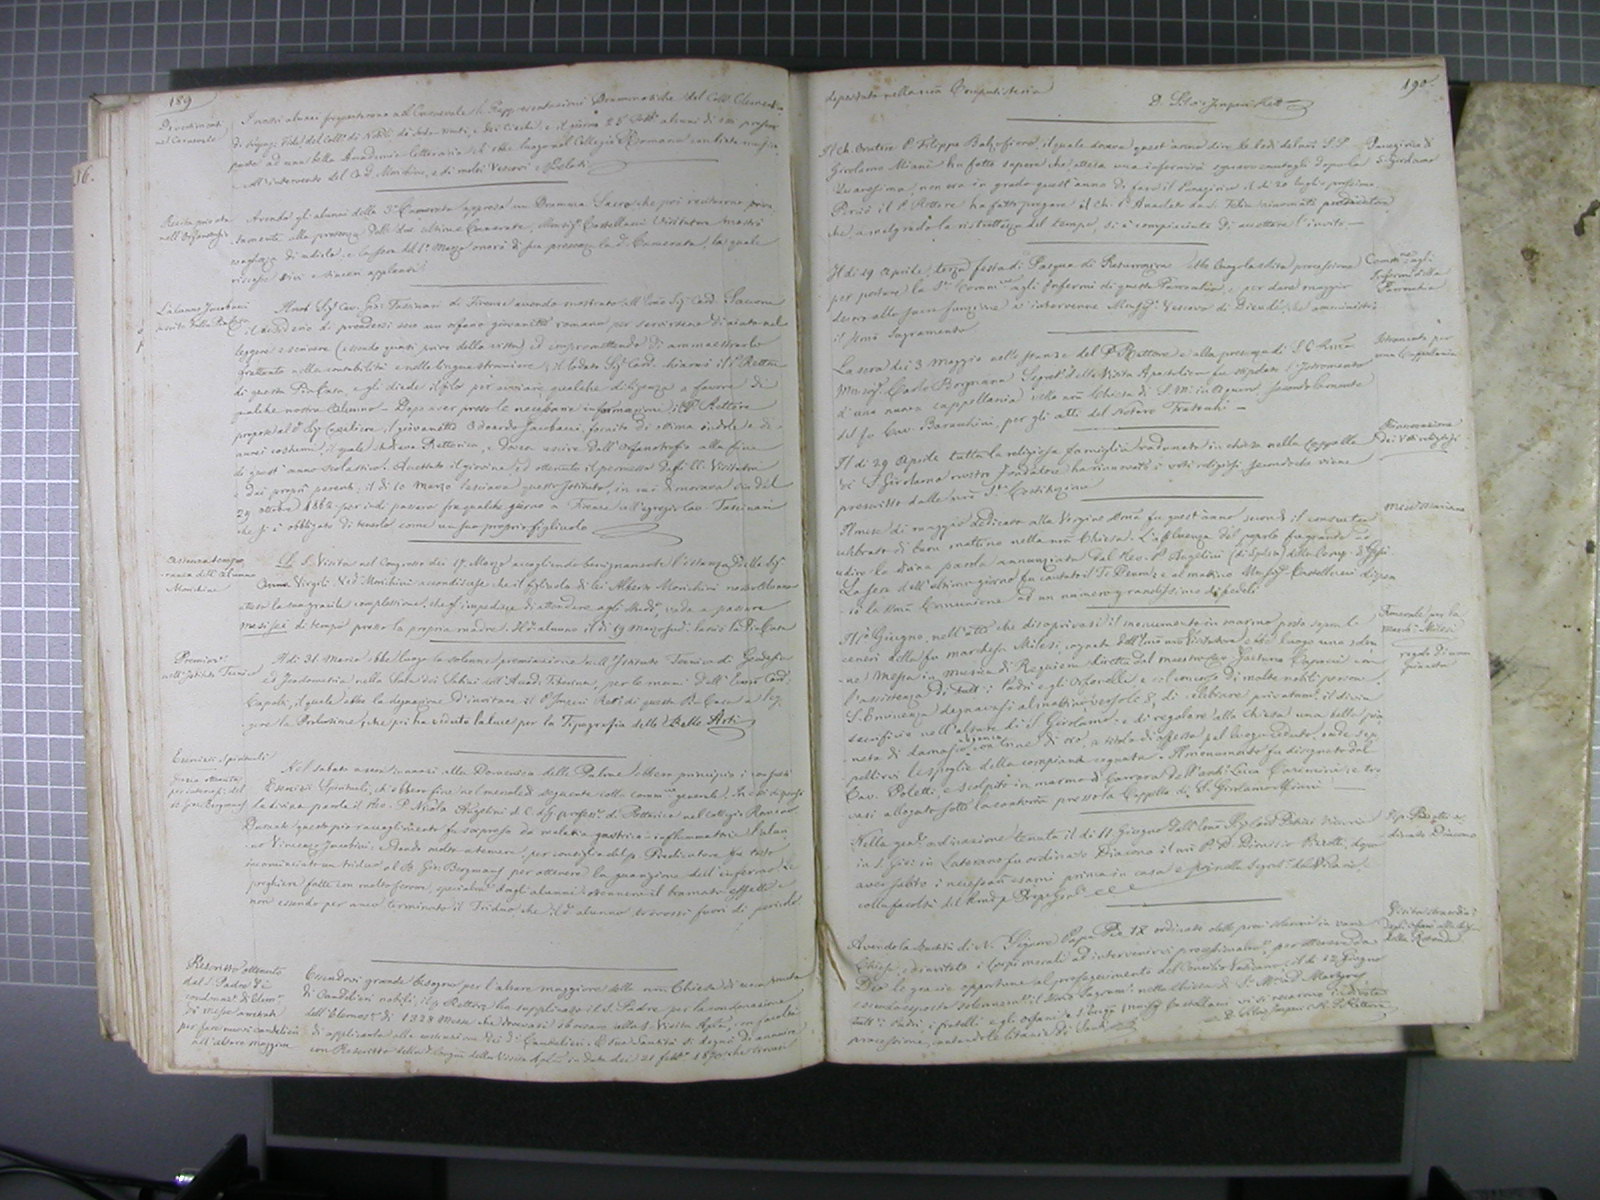 189
Divertimenti
nel Carnevale
I nostri alunni frequentarono nel Carnevale le Rappresentazioni Drammatiche del Coll. Clement.
parte ad una bella Accademia letteraria ch'ebbe luogo nel Collegio Romano
coll'intervento del Card. Morichini, e di molti Vescovi e Prelati
Recita privata
nell'Orfanotrofio
Avendo gli alunni della 3a Camerata appreso un Dramma Sacro che poi recitarono priva
tamente alla presenza delle due ultime Camerate, Monsigr Castellani Visitatore mostrò
vaghezza di udirlo, e la sera del 1o Marzo onorò di sua presenza la da Camerata, la quale
riscosse vivi e sinceri applausi
L'alunno Jacobacci
uscito dalla Pia Casa
Sigr Cav. Tassinari di Firenze avendo mostrato all'Emo Sigr Card. Sacconi
il desiderio di prendersi seco un orfano giovanetto romano per servirsene di aiuto nel
leggere e scrivere (essendo quasi privo della vista) ed impromettendo di ammaestrarlo
frattanto nella contabilità e nelle lingue straniere, il lodato Sigr Card. chiamò il P. Rettore
di questa Pia Casa, e gli diede il filo per avviare qualche diligenza a favore di
qualche nostro Alunno - Dopo aver preso le necessarie informazioni il P. Rettore
propose al do Sigr Cavaliere il giovanetto Edoardo Jacobacci, fornito di ottima indole e di
aurei costumi, il quale studiava Rettorica, e doveva uscire dall'Orfanotrofio alla fine
di quest'anno scolastico. Accettato il giovine, ed ottenuto il permesso
e dai proprii parenti, il dì 10 Marzo lasciava questo Istituto, in cui dimorava sin dal
29 ottobre 1862 per indi passare fra qualche giorno a Firenze coll'egregio Cav. Tassinari
che si è obbligato di tenerlo come un suo proprio figliuolo
Assenza tempo
ranea dell'alunno
Morichini
La S. Visita nel Congresso dei 17 Marzo accogliendo benignamente l'istanza della Sigra
Anna Virgili Ved. Morichini accondiscese che il figliuolo di lei Alberto Morichini
attesa la sua gracile complessione, che gl'impedisce di attendere agli studi, vada a passare
mesi sei di tempo presso la propria madre. Il do alunno il dì 19 Marzo lasciò la Pia Casa
Premiaz.
nell'Istituto Tecnico
Il dì 31 Marzo ebbe luogo la solenne premiazione nell'Istituto Tecnico di Geodesia
ed Icodometria nella Sala dei Sabini dell'Accad. Tiberina, per le mani dell'Emo Card.
Capalti, il quale ebbe la degnazione d'invitare il P. Imperi Rett. di questa Pia Casa a leg
gere la Prolusione, che poi ha veduto la luce per la Tipografia delle Belle Arti
Esercizi Spirituali
Grazia ottenuta
per interceps. del
Nel sabato avanti alla Domenica delle Palme ebbero principio i consueti
Esercizi Spirituali, ch'ebbero fine nel mercoledì seguente colla comme generale.
la divina parola il Rev. P. Nicola Angelini d. C. d. G. profess. di Rettorica nel Collegio Romano
Durante questo pio raccoglimento fu sorpreso da malatia gastrico-inflammatoria l'alun
no Vincenzo Jacobini. Dando molto a temere, per consiglio del P. Predicatore fu tosto
incominciato un triduo al B. Gio. Bergmans per ottenere la guarigione dell'infermo. Le
preghiere fatte con molto fervore, specialmte dagli alunni ottennero il bramato effetto e
non essendo per anco terminato il Triduo che il do alunno trovossi fuori di pericolo
Rescritto ottenuto
dal S. Padre di
condonaz. di Elemos.
di Messe arretrate
per fare nuovi candelieri
all'altare Maggiore
Essendovi grande bisogno per l'altare maggiore della nra Chiesa di una muta
di Candelieri nobili, il P. Rettore ha supplicato il S. Padre per la condonazione
dell'Elemos. di 1328 Messe che dovevasi sborsare alla S. Visita Apla, con facoltà
di applicarla alla costruzione dei di Candelieri. E Sua Santità si degnò di annuire
con Rescritto della Congne della Visita Apla in data dei 21 febbr. 1870 che trovasi
190
depositato nella nra Computisteria
D. Silvio Imperi Rett.
Panegirico di
S. Girolamo
Il Ch. Oratore P. Filippo Balzofiore, il quale doveva quest'anno dire le lodi del nro S. P.
Girolamo Miani ha fatto sapere che attesa una infermità sopravvenutagli dopo la
Quaresima, non era in grado quest'anno di fare il Panegirico il dì 20 luglio prossimo.
Perciò il P. Rettore ha fatto pregare il Ch. P. Anacleto da S. Felice rinomato predicatore,
che, a malgrado la ristrettezza del tempo, si è compiaciuto di accettare l'invito -
Comne agli
Infermi della
Parrocchia
Il dì 19 Aprile, terza festa di Pasqua di Resurrezione ebbe luogo la solita processione
per portare la S. Comme agli Infermi di questa Parrocchia, e per dare maggior
decoro alla sacra funzione v'intervenne Monsigr Vescovo di che amministrò
il Smo Sagramento
Istromento per
una Cappellania
La sera dei 3 Maggio nelle stanze del P. Rettore e alla presenza di S. E. Rma
Monsigr Carlo Borgnana Segret. della Visita Apostolica fu stipolato l'Istromento
d'una nuova cappellania nella nra Chiesa di S. M. in Aquiro, secondo la mente
del fu Cav. Baracchini, per gli atti del Notaro Fratocchi -
Rinnovazione
dei Voti religiosi
Il dì 29 Aprile tutta la religiosa famiglia radunata in chiesa nella Cappella
di S. Girolamo nostro Fondatore ha rinnovato i voti religiosi secondo che viene
prescritto dalle nre Ste Costituzioni
Mese Mariano
Il mese di maggio dedicato alla Vergine SSma fu quest'anno secondo il consueto
celebrato di buon mattino nella nra Chiesa. L'affluenza del popolo fu grande ad
udire la divina parola annunziata dal Rev. P. Angelini della Comp. di Gesù
La sera dell'ultimo giorno fu cantato il Te Deum: e al mattino Monsigr Castellacci dispen
sò la SSma Comunione ad un numero grandissimo di fedeli
Funerale per la
march. Milesi
regalo di una
pianeta
Il Giugno, nell'atto che discoprivasi il monumento in marmo posto sopra le
ceneri della fu marchesa Milesi, cognata dell'Emo nro Visitatore ebbe luogo una solen
ne Messa in musica di Requiem diretta dal maestro Cav. Gaetano Capocci con
l'assistenza di tutti i Padri e gli Orfanelli e col concorso di molte nobili persone.
S. Eminenza degnavasi al mattino verso le 8, di celebrare privatam. il divin
sacrificio nell'altare di S. Girolamo, e di regalare alla Chiesa una bella pia
neta di damasco con trine di oro, a titolo di offerta pel luogo ceduto, onde sep
pellirvi le spoglie della compianta cognata. Il monumento fu disegnato dal
Cav. Poletti e scolpito in marmo di Carrara dall'arch. Luca Carimini: e tro
vasi allogato sotto la cantoria presso la Cappella di S. Girolamo Miani
ordinato Diacono
Nella genl. ordinazione tenuta il dì 11 Giugno dall'Emo Sigr Card. Patrizi Vicario
in S. Gio. in Laterano fu ordinato Diacono il nro P. D. Dionisio Pizzotti, dopo
aver subito i necessari esami prima in casa e poi nella Segret. del Vicario.
colla facoltà del Rmo P. Preposto
Visita straordin.
degli orfani alla
della Rotonda
Avendo la Santità di N. Signore Papa Pio IX ordinato delle preci solenni in varie
Chiese, e invitato i Corpi morali ad intervenirvi processionalm. per ottenere da
Dio le grazie opportune al proseguimento del Concilio Vaticano, il dì 12 Giugno
essendo esposto solennem. il Smo Sagram. nella Chiesa di S. M. ad Martyres
tutti i Padri, i fratelli e gli orfani e monsigr Castellani vi si recarono in devota
processione, cantando le litanie dei Santi
D. Silvio Imperi C.R.S. Rettore